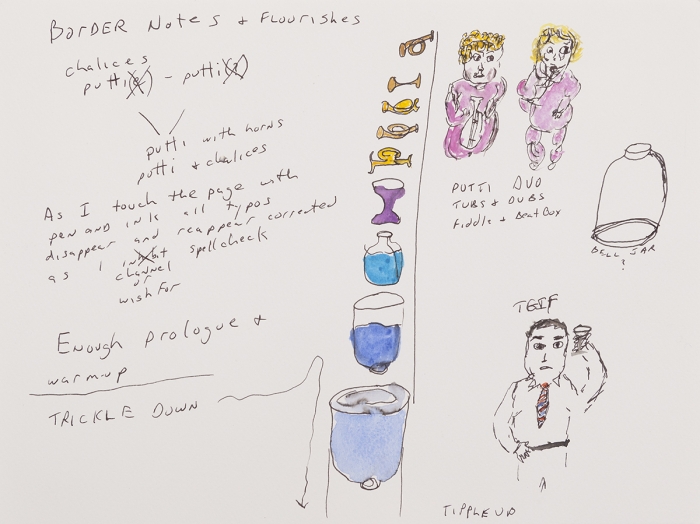 BORDER NOTES & FLOURISHES
chalices
putti(e) - putti(z)
putti with horns
putti & chalices
As I touch the page with
pen AND ink all typos
disappear and reappear corrected
as I
channel
or
wish for
spellcheck
Enough prologue &
warm-up
TRICKLE DOWN
PUTTI DUO
TUBS & DUBS
Fiddle & Beat Box
BELL JAR
?
TGIF
TIPPLE UP